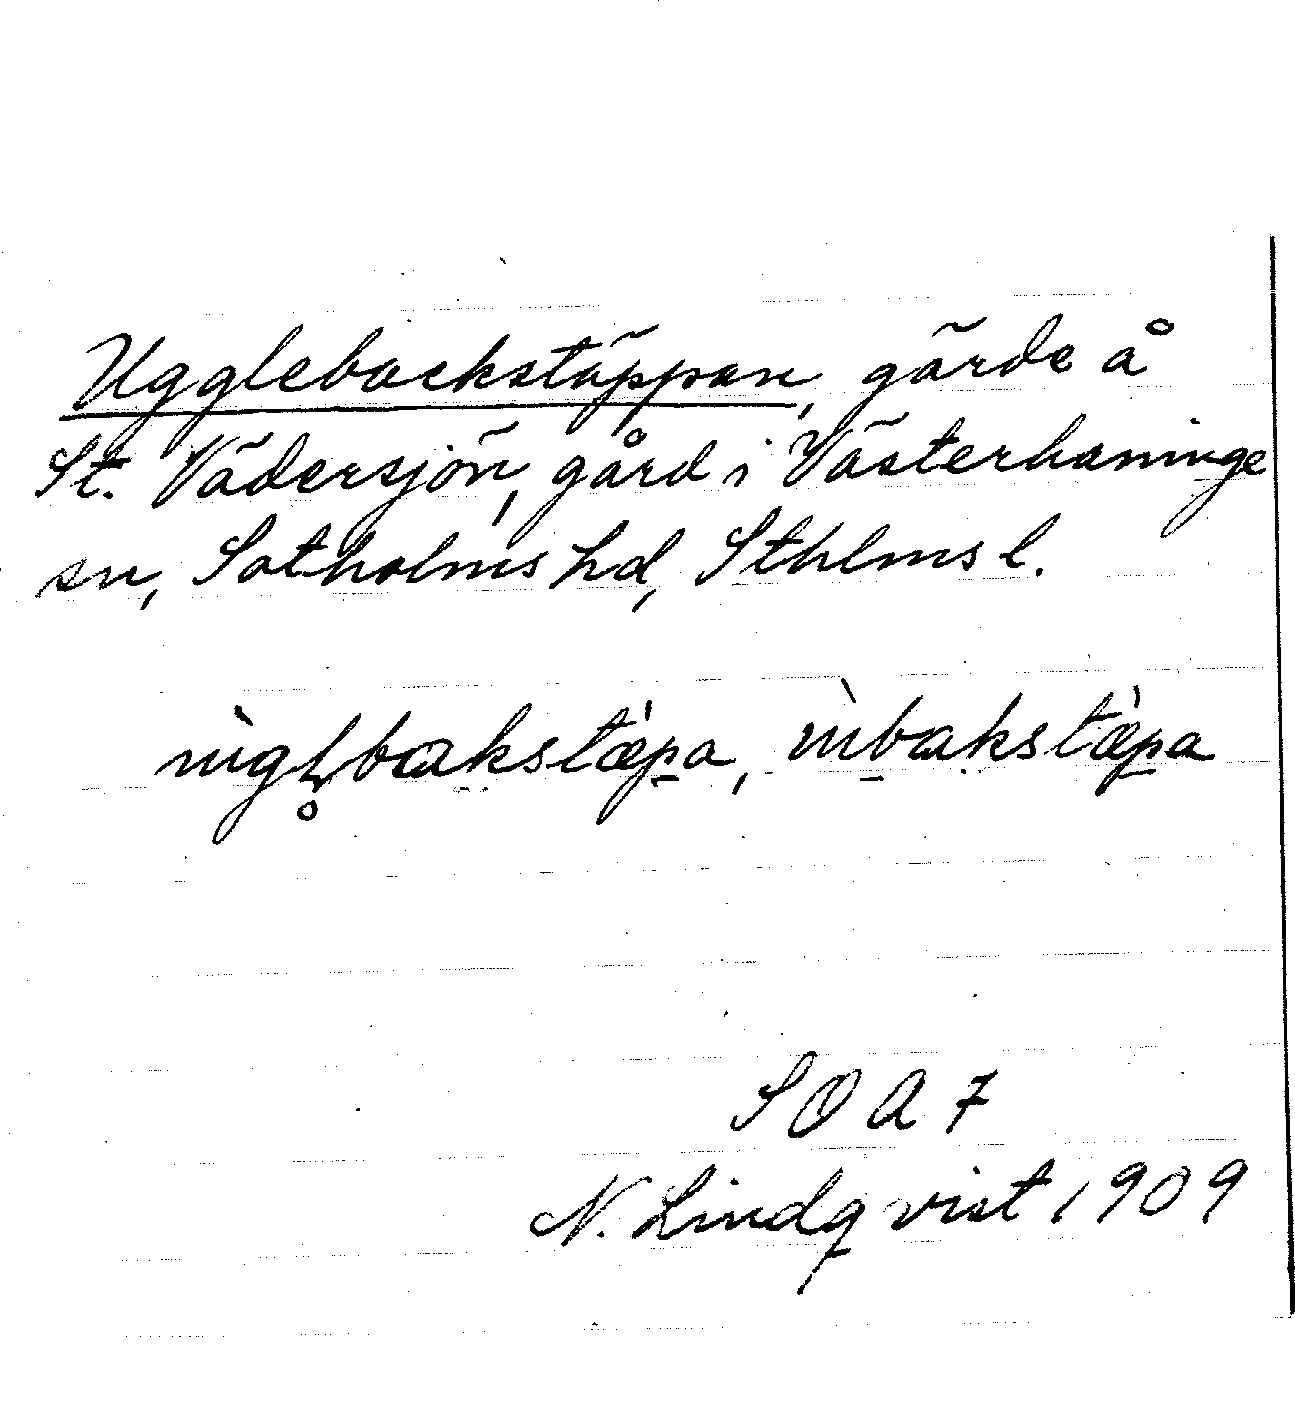 Ugglebackstäppan, gärde å
St. Vädersjön, gård i Västerhaninge
sn, Sotholms hd, Sthlms l.
S O A 7
N. Lindqvist 1909